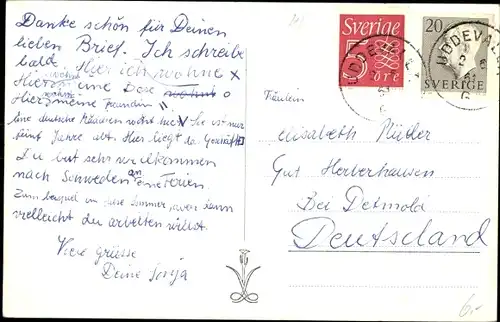 Danke schön für Deinen
lieben Brief. Ich schreibe
bald. Hier ich wohne x
Hier wohnt eine Dose wohnt o
Hier wohnt meine Freundin
Eine deutsche Mädchen wohnt hier V Sie ist nur
fünf Jahre alt. Hier liegt da Geschäft
Du bist sehr willkommen
nach Schweden an eine Ferien.
Zum beispiel im diese Sommer, wenn dann
vielleicht du arbeiten willst.
Viele grüsse
Deine Sonja
Sverige
5
öre
20
UDDEVALLA
UDDEVALLA
Fräulein
Elisabeth
Gut Herberhausen
Bei Detmold
Deutschland
6.-